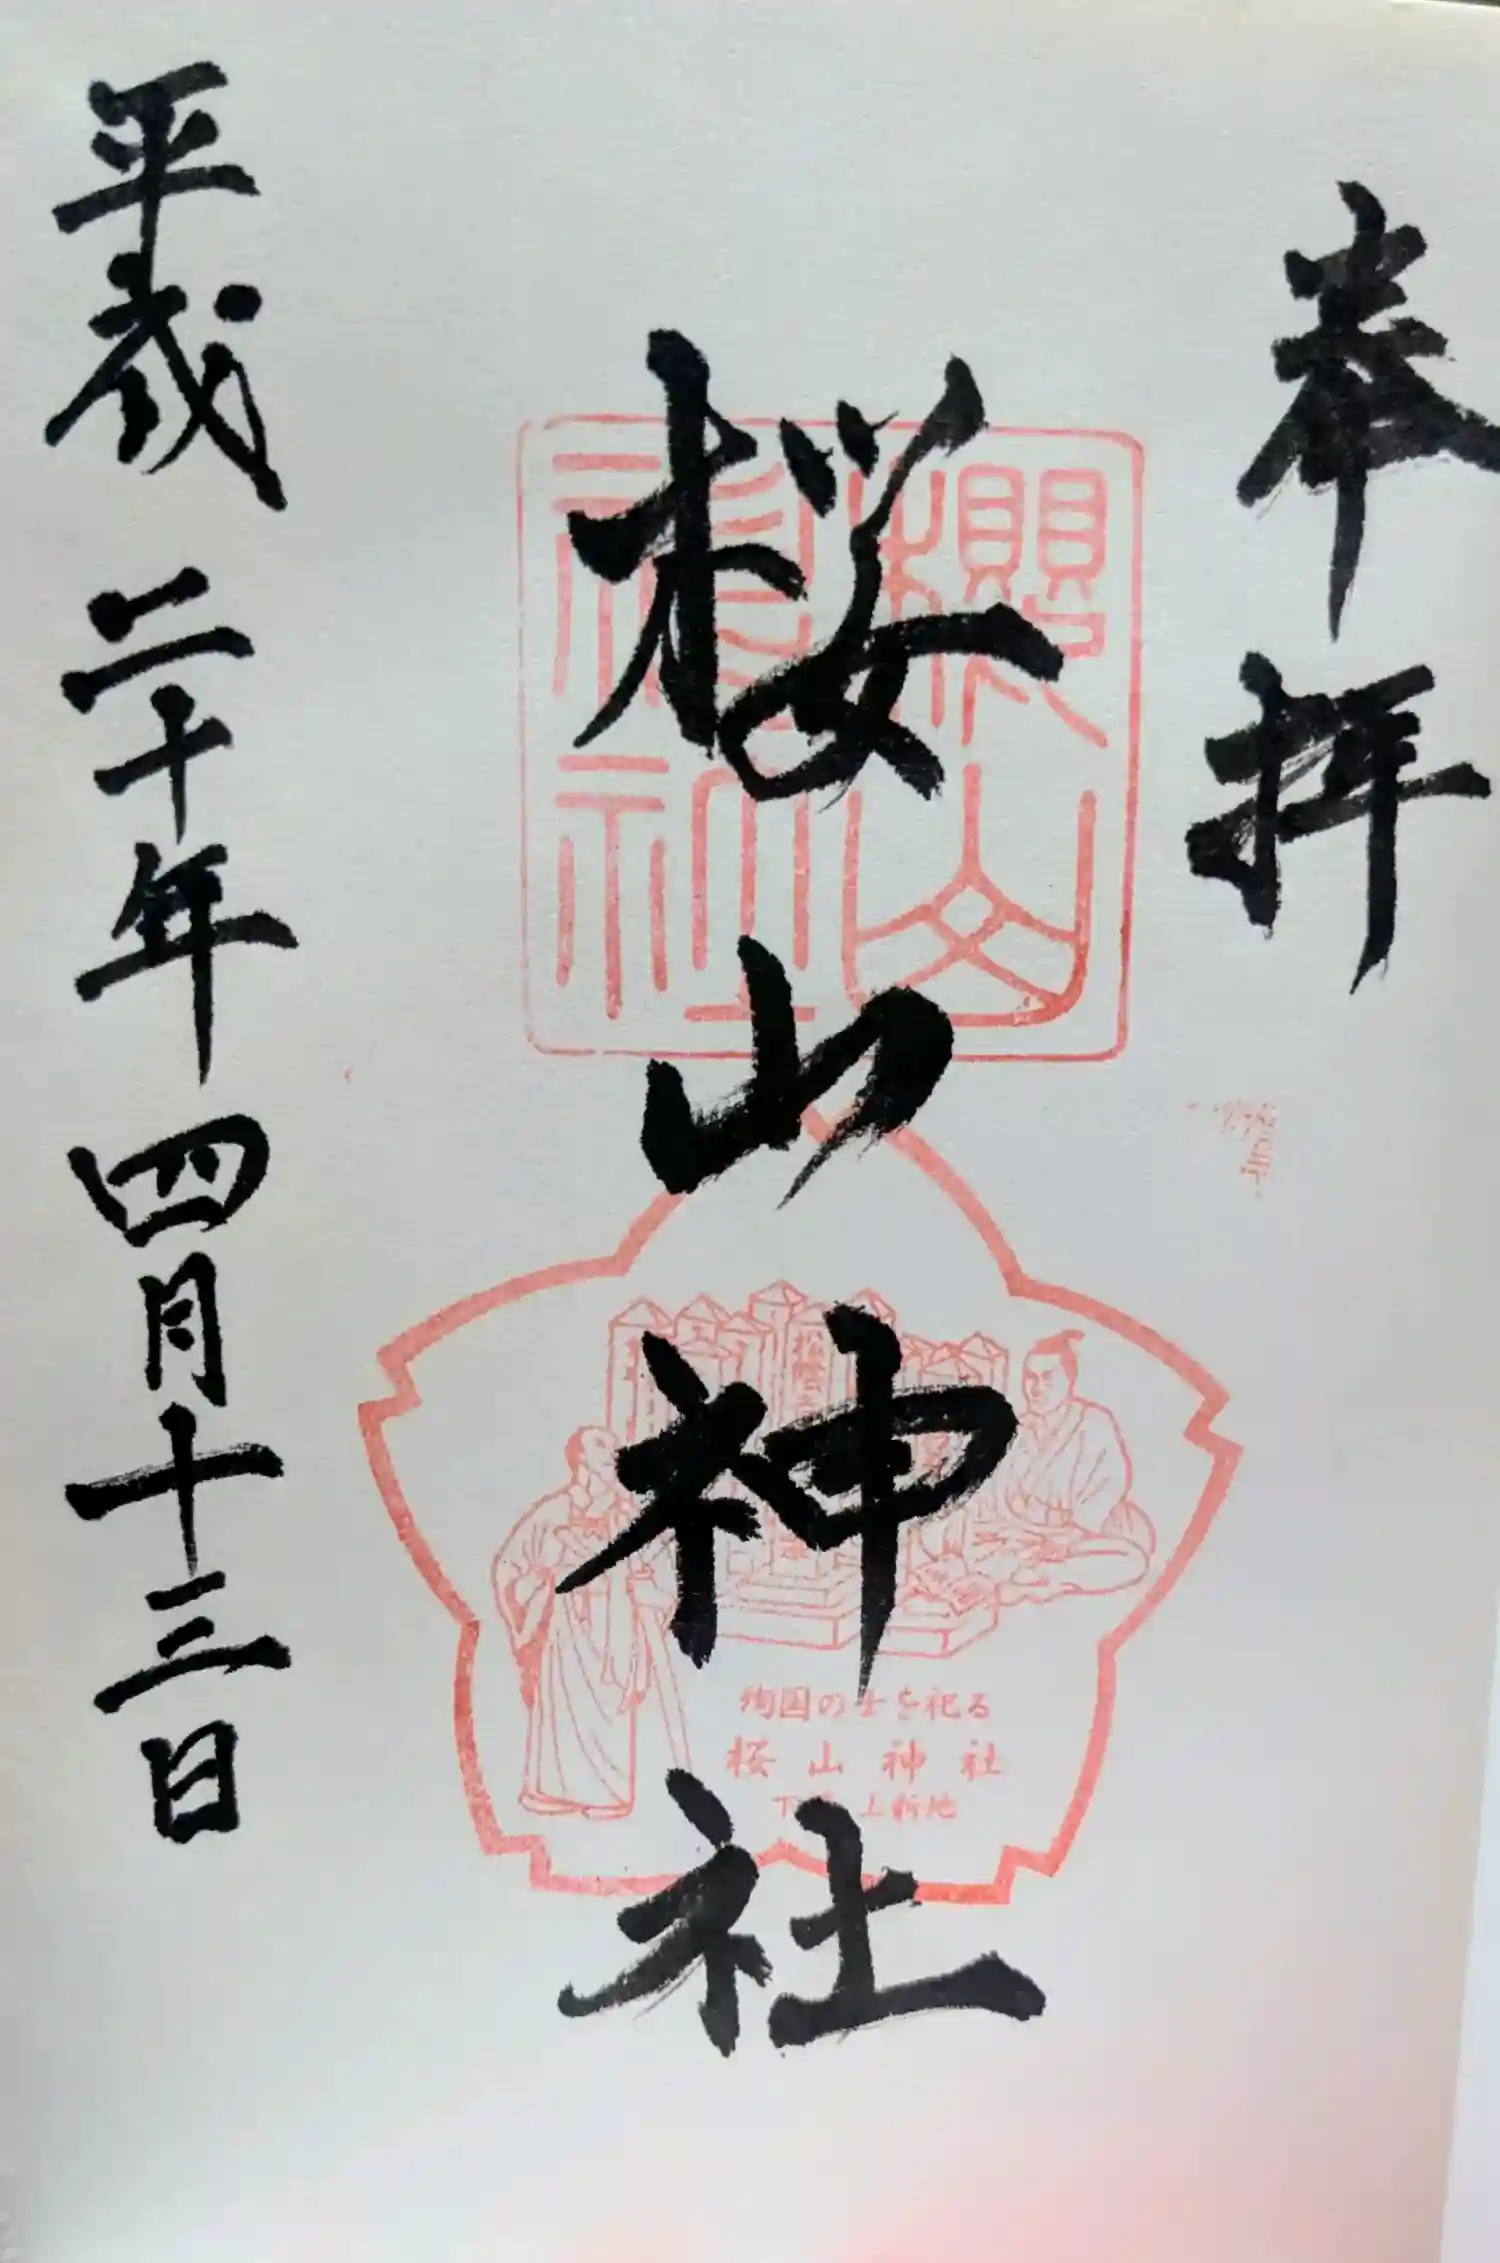 奉拝
桜山神社
平成二十年四月十三日
櫻山
神社
殉国の士を祀る
桜山神社
下関 上新地